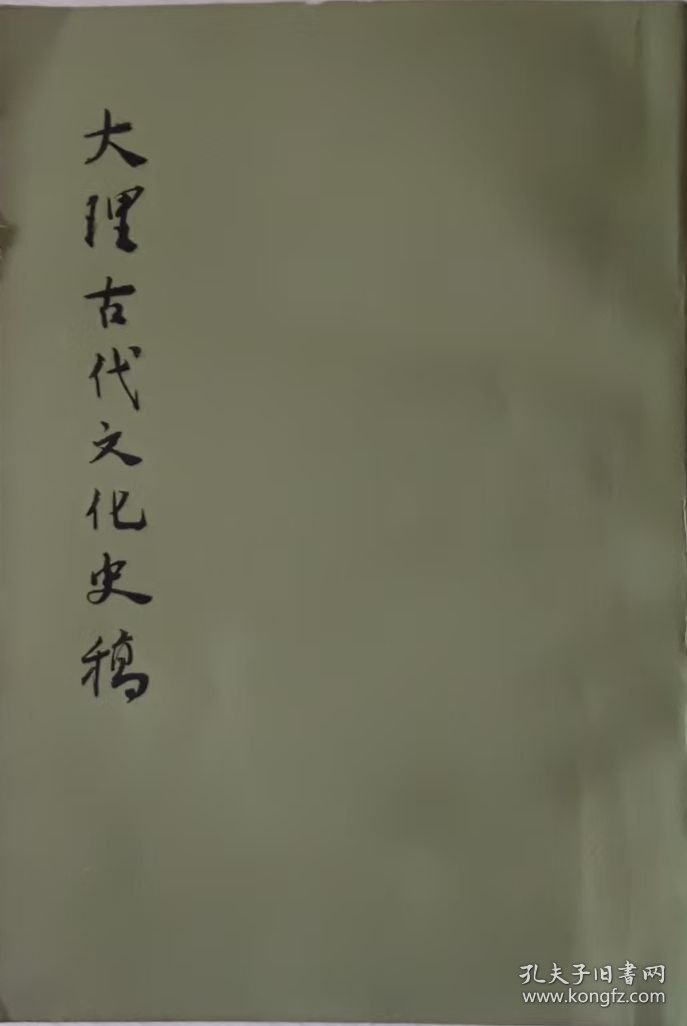 大理古代文化史稿
孔夫子旧書网
www.kongfz.com